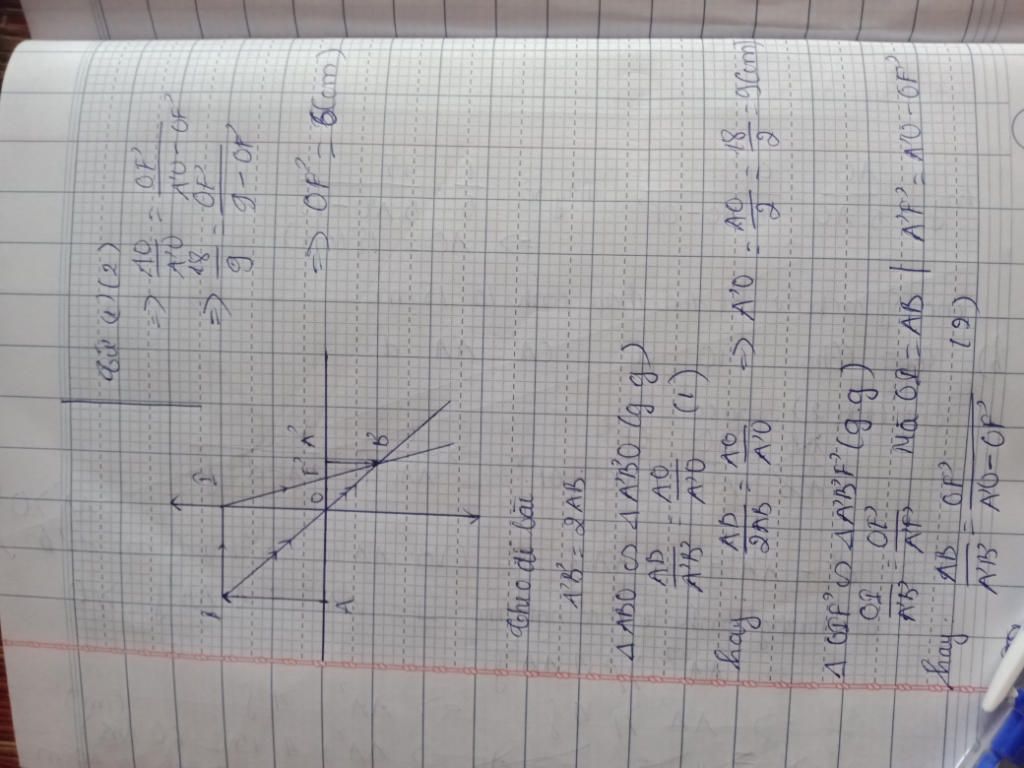 B
I
O
F'
A'
B'
A
Theo đề bài
A'B' = 2AB
Δ ABO ∽ Δ A'B'O (g.g)
AB/A'B' = AO/A'O (1)
hay AB/2AB = AO/A'O => A'O = AO/2 = 18/2 = 9(cm)
Δ OIF' ∽ Δ A'B'F' (g.g)
OI/A'B' = OF'/A'F' Mà OI = AB | A'F' = A'O - OF'
hay AB/A'B' = OF'/A'O-OF' (2)
Từ (1) (2)
=> AO/A'O = OF'/A'O-OF'
=> 18/9 = OF'/9-OF'
=> OF' = 6(cm)